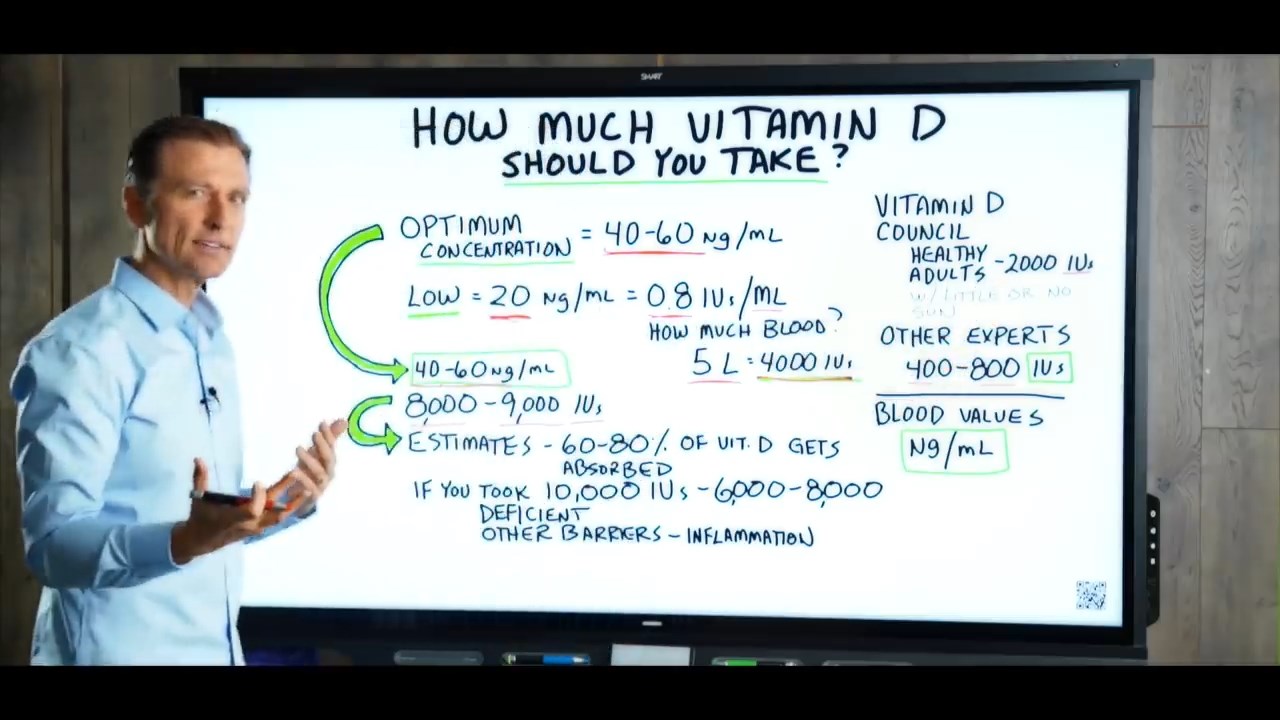 SMART
HOW MUCH VITAMIN D
SHOULD YOU TAKE?
OPTIMUM
CONCENTRATION = 40-60 Ng/mL
LOW = 20 Ng/mL = 0.8 IUs/ML
HOW MUCH BLOOD?
5 L = 4000 IUs
40-60 Ng/mL
8,000-9,000 IUs
ESTIMATES - 60-80% OF VIT. D GETS
ABSORBED
IF YOU TOOK 10,000 IUs - 6,000-8,000
DEFICIENT
OTHER BARRIERS - INFLAMMATION
VITAMIN D
COUNCIL
HEALTHY
ADULTS - 2000 IUs
W/ LITTLE OR NO
SUN
OTHER EXPERTS
400-800 IUs
BLOOD VALUES
Ng/mL